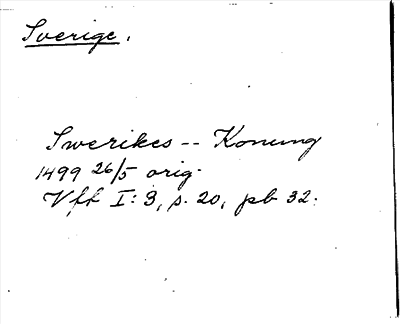 Sverige.
Swerikes -- Konung
1499 26/5 orig.
Vff I: 3, s. 20, pb 32.